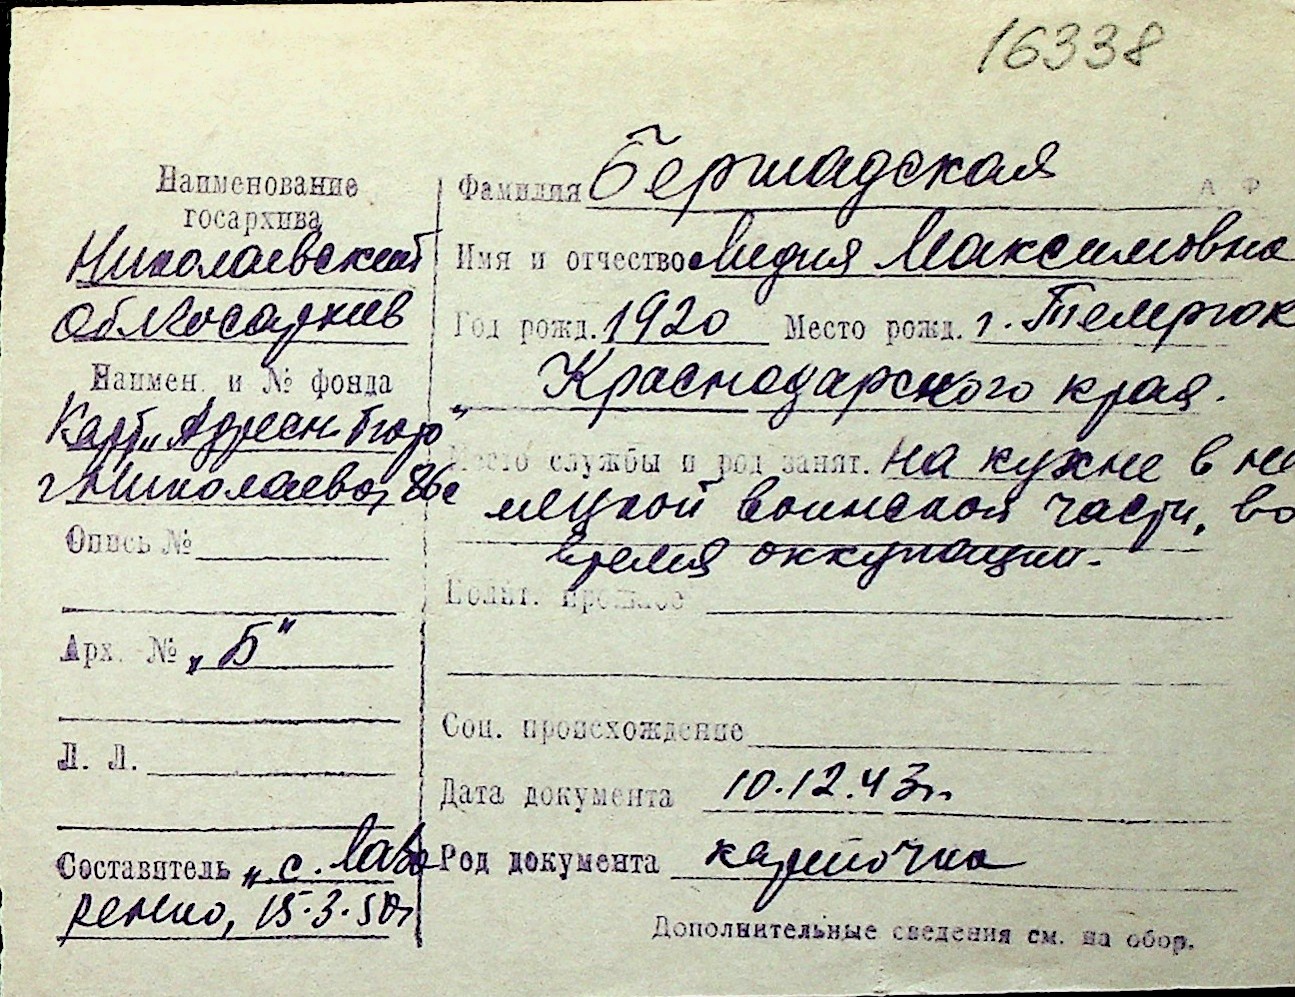 16338
Наименование
госархива
Николаевский
облгосархив
Наимен. и № фонда
Карт. „Адресн. бюро"
г. Николаева,
Опись №
Арх. № „Б"
Л. Л.
Составитель „с. Лав
ренко, 15.3.50г
Фамилия Бершадская
А Ф
Имя и отчество Лидия Максимовна
Год рожд. 1920 Место рожд. г. Темрюк
Краснодарского края.
Место службы и род занят. на кухне в не
мецкой воинской части, во
время оккупации.
Полит. прошлое
Соц. происхождение
Дата документа 10.12.43г.
Род документа карточка
Дополнительные сведения см. на обор.